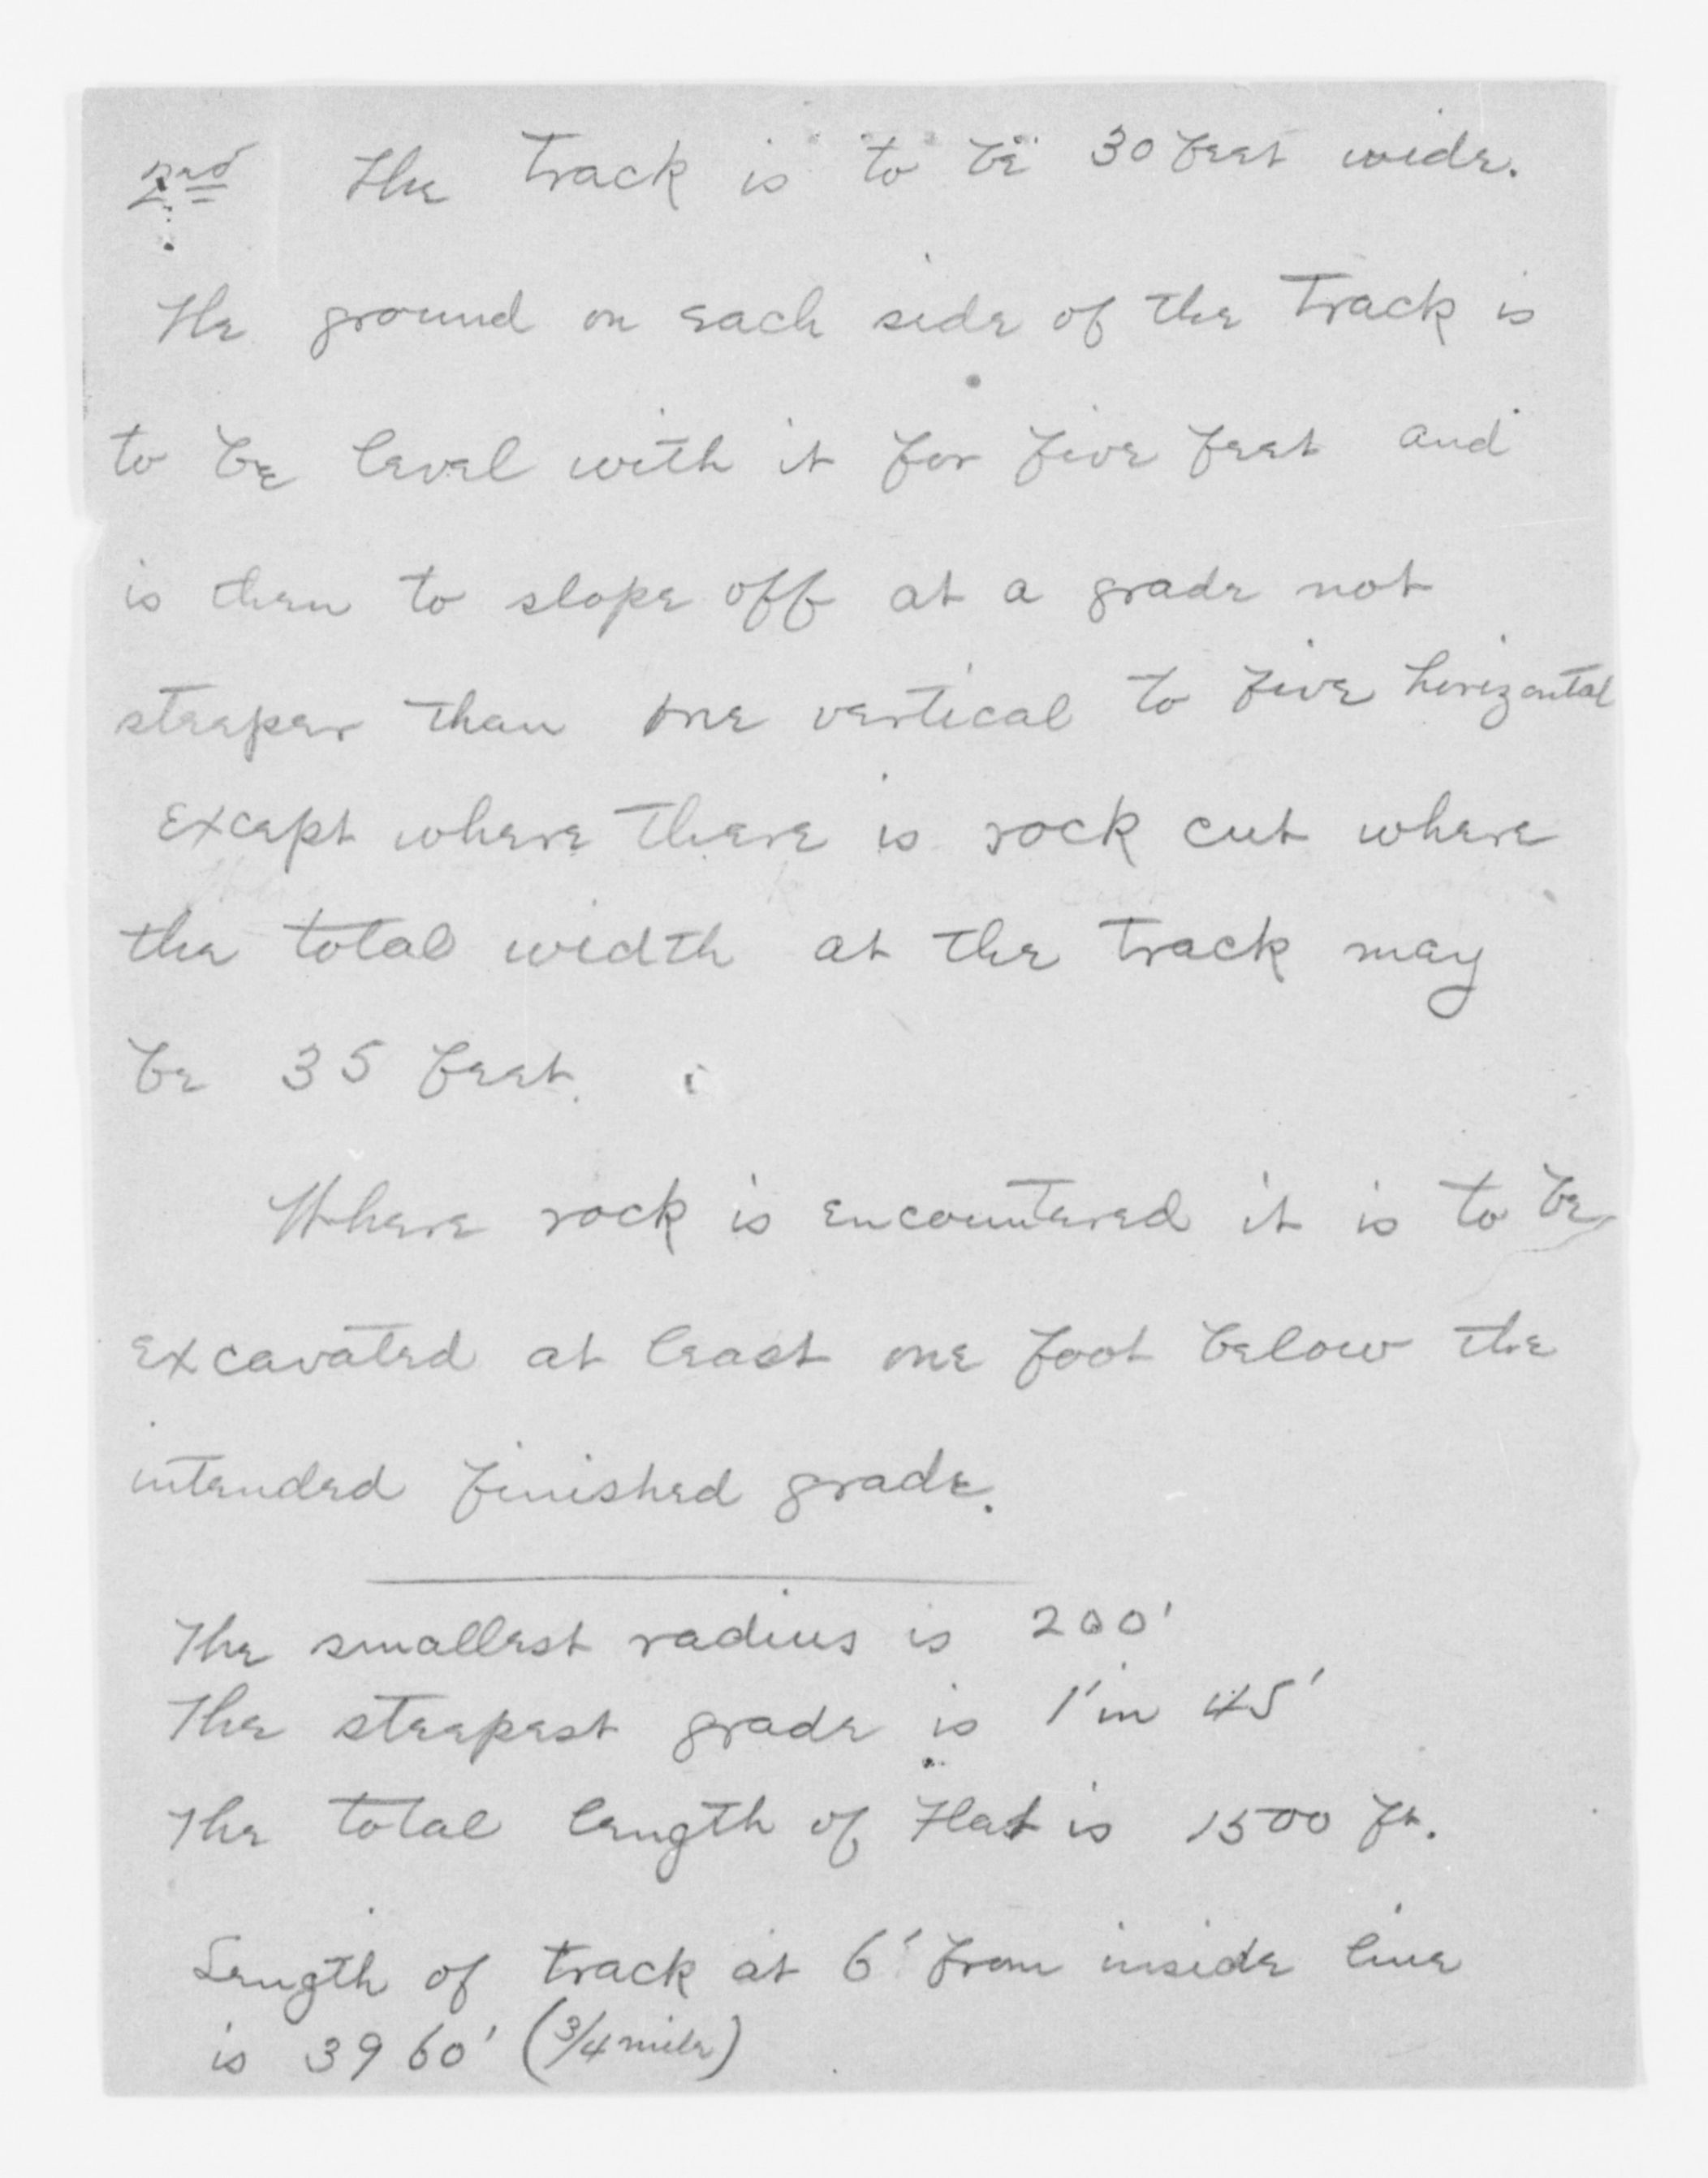 2nd The track is to be 30 feet wide.
The ground on each side of the track is
to be level with it for five feet and
is then to slope off at a grade not
steeper than one vertical to five horizontal
except where there is rock cut where
the total width at the track may
be 35 feet.
Where rock is encountered it is to be
excavated at least one foot below the
intended finished grade.
The smallest radius is 200'
The steepest grade is 1' in 45'
The total length of Flat is 1500 ft.
Length of track at 6' from inside line
is 3960' (3/4 mile)